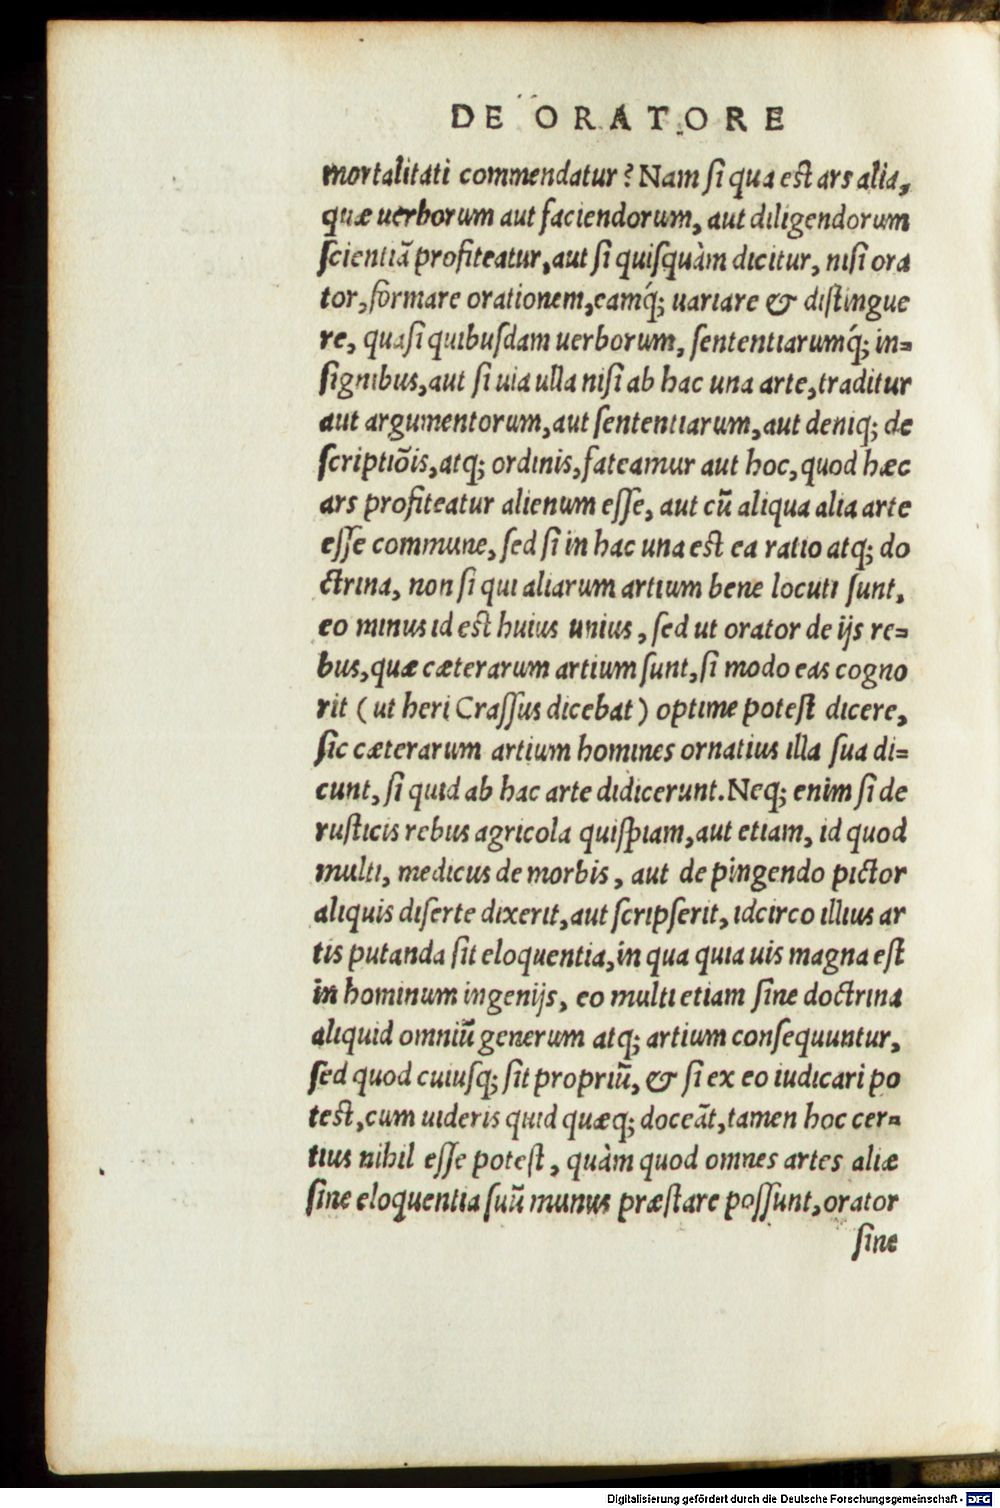 DE ORATORE
mortalitati commendatur? Nam ſi qua eſt ars alia,
quæ uerborum aut faciendorum, aut diligendorum
ſcientiã profiteatur, aut ſi quiſquàm dicitur, niſi ora
tor, formare orationem, eamq́; uariare & diſtingue
re, quaſi quibuſdam uerborum, ſententiarumq́; in=
ſignibus, aut ſi uia ulla niſi ab hac una arte, traditur
aut argumentorum, aut ſententiarum, aut deniq; de
ſcriptiõis, atq; ordinis, fateamur aut hoc, quod hæc
ars profiteatur alienum eſſe, aut cũ aliqua alia arte
eſſe commune, ſed ſi in hac una eſt ea ratio atq; do
ctrina, non ſi qui aliarum artium bene locuti ſunt,
eo minus id eſt huius unius, ſed ut orator de ijs re=
bus, quæ cæterarum artium ſunt, ſi modo eas cogno
rit (ut heri Craſſus dicebat) optime poteſt dicere,
ſic cæterarum artium homines ornatius illa ſua di=
cunt, ſi quid ab hac arte didicerunt. Neq; enim ſi de
ruſticis rebus agricola quiſpiam, aut etiam, id quod
multi, medicus de morbis, aut de pingendo pictor
aliquis diſerte dixerit, aut ſcripſerit, idcirco illius ar
tis putanda ſit eloquentia, in qua quia uis magna eſt
in hominum ingenijs, eo multi etiam ſine doctrina
aliquid omniũ generum atq; artium conſequuntur,
ſed quod cuiuſq; ſit propriũ, & ſi ex eo iudicari po
teſt, cum uideris quid quæq; doceãt, tamen hoc cer=
tius nihil eſſe poteſt, quàm quod omnes artes aliæ
ſine eloquentia ſuũ munus præſtare poſſunt, orator
ſine
Digitalisierung gefördert durch die Deutsche Forschungsgemeinschaft - DFG